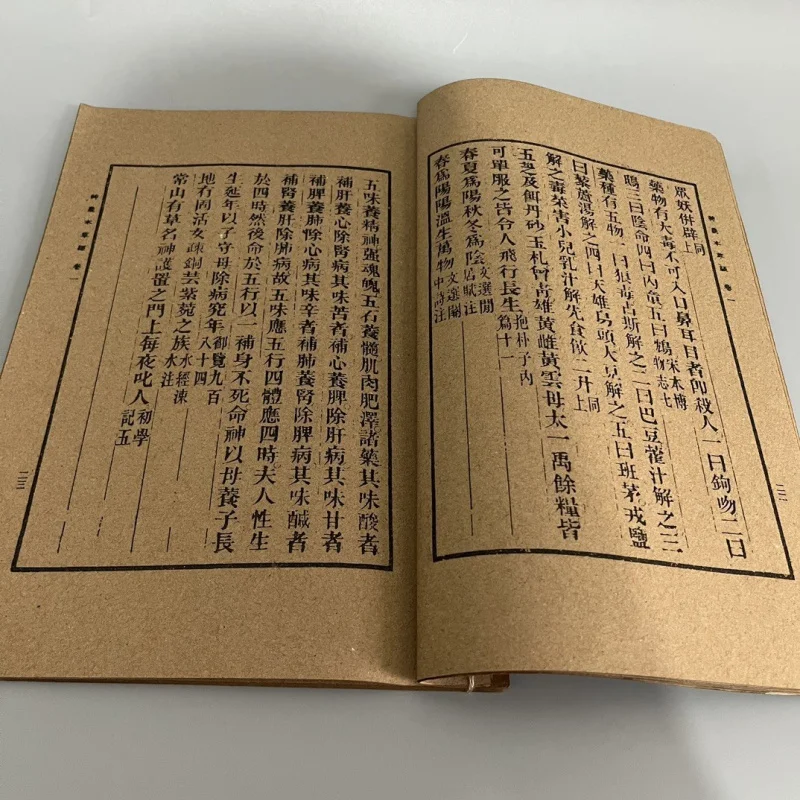 神農本草經 卷一
眾妖併辟同上
藥物有大毒不可入口鼻耳目者即殺人一曰鉤吻二曰
鴟三曰陰命四曰內童五曰鴆宋本博物志七
藥種有五物一曰狼毒占斯解之二曰巴豆藿汁解之三
曰藜蘆湯解之四曰天雄烏頭大豆解之五曰班茅戎鹽
解之毒菜害小兒乳汁解先食飲二升同上
五芝及餌丹砂玉札曾青雄黃雌黃雲母太一禹餘糧皆
可單服之皆令人飛行長生抱朴子內篇十一
春夏爲陽秋冬爲陰文選閒居賦注
春爲陽陽溫生萬物文選關中詩注
二二
五味養精神強魂魄五石養髓肌肉肥澤諸藥其味酸者
補肝養心除腎病其味苦者補心養脾除肝病其味甘者
補脾養肺除心病其味辛者補肺養腎除脾病其味鹹者
補腎養肝除肺病故五味應五行四體應四時夫人性生
於四時然後命於五行以一補身不死命神以母養子長
生延年以子守母除病究年御覽九百八十四
地有固活女疎銅芸紫菀之族水經涑水注
常山有草名神護置之門上每夜叱人初學記五
神農本草經 卷一
二三